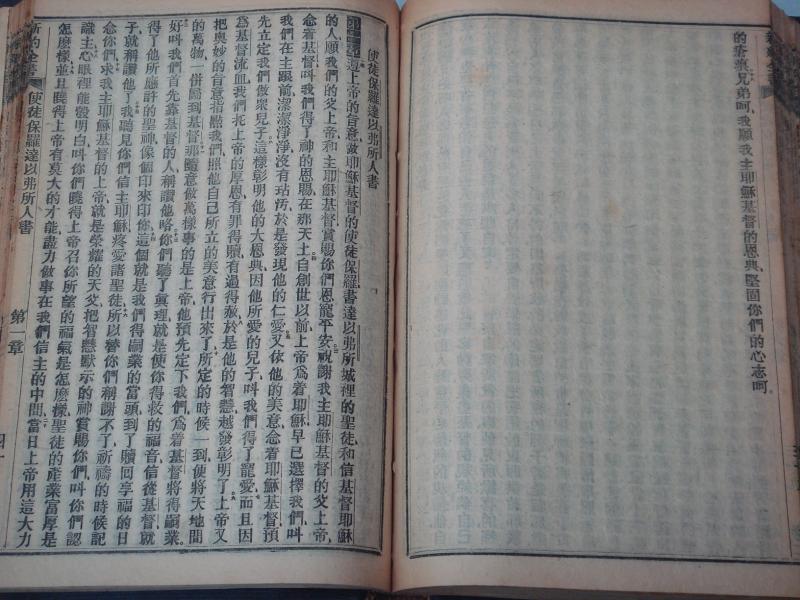 的瘡痕兄弟呵我願我主耶穌基督的恩典堅固你們的心志呵
使徒保羅達以弗所人書
上帝的旨意做耶穌基督的使徒保羅書達以弗所城裡的聖徒和信基督耶穌
的人願我們的父上帝和主耶穌基督賞賜你們恩寵平安祝謝我主耶穌基督的父上帝
念着基督叫我們得了神的恩賜在那天上自創世以前上帝爲着耶穌早已選擇我們叫
我們在主跟前潔潔淨淨沒有玷汚於是發現他的仁愛又依他的美意念着耶穌基督預
先立定我們做衆兒子這樣彰明他的大恩典因他所愛的兒子叫我們得了寵愛而且因
爲基督流血我們托上帝的厚恩有罪得贖有過得赦於是他的智慧越發彰明了上帝又
把奧妙的旨意指點我們照他自己所立的美意行出來了所定的時候一到便將天地間
的萬物併歸到基督那隨意做萬樣事的是上帝他預先定下我們爲着基督將得嗣業
好叫我們首先靠基督的人稱讚他咯你們聽了眞理就是使你得救的福音信從基督就
得了他所應許的聖神像個印來印你這個就是我們得嗣業的當頭到了贖回享福的日
子就稱讚他了我聽見你們信主耶穌疼愛諸聖徒所以替你們稱謝不了祈禱的時候記
念你們求我主耶穌基督的上帝就是榮耀的天父把智慧默示的神賞賜你們叫你們認
識主心眼裡能發明白叫你們曉得上帝召你所望的福氣是怎麼樣聖徒的產業富厚是
怎麼樣並且曉得上帝有莫大的才能盡力做事在我們信主的中間當日上帝用這大力
新約全書 使徒保羅達以弗所人書 第一章